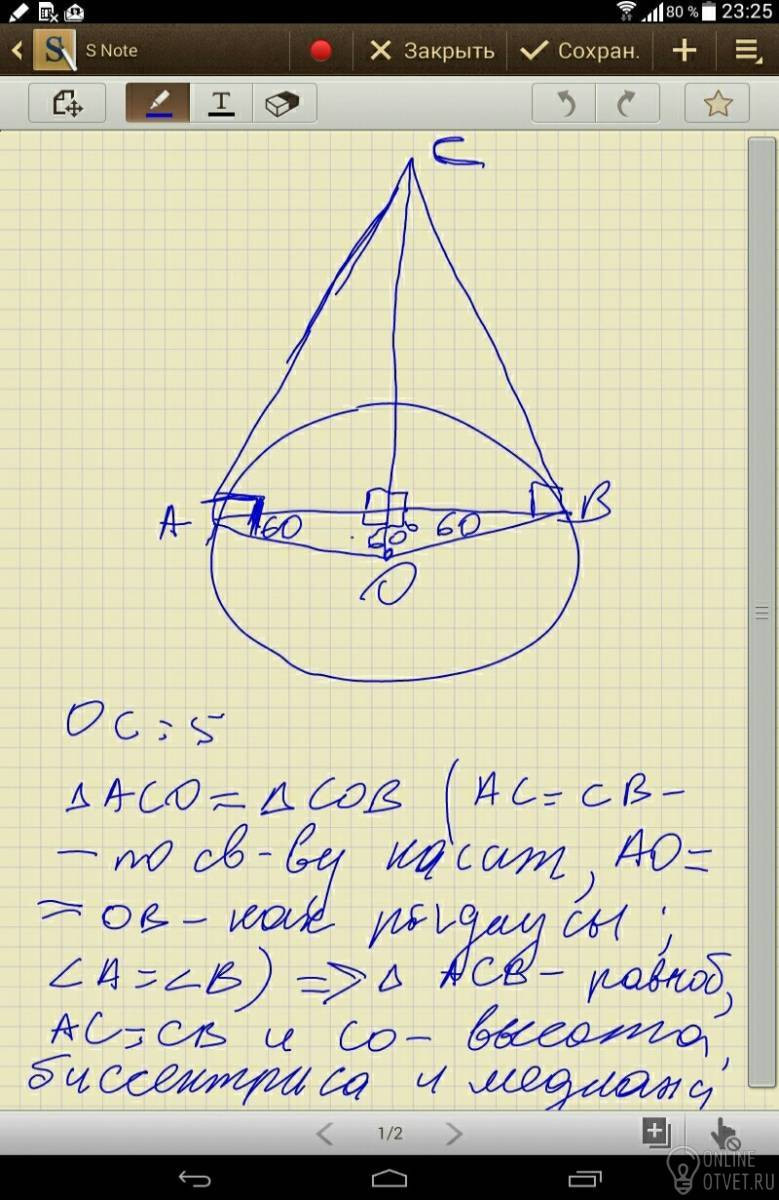 80 % 23:25
S Note Закрыть Сохран.
T
C
A 60 60° 60 B
O
OC = 5
△ACO = △COB (AC = CB –
– по св-ву касат, AO =
= OB – как радиусы;
∠A = ∠B) => △ ACB – равноб,
AC = CB и CO – высота,
биссектриса и медиана
1/2
ONLINE
OTVET.RU